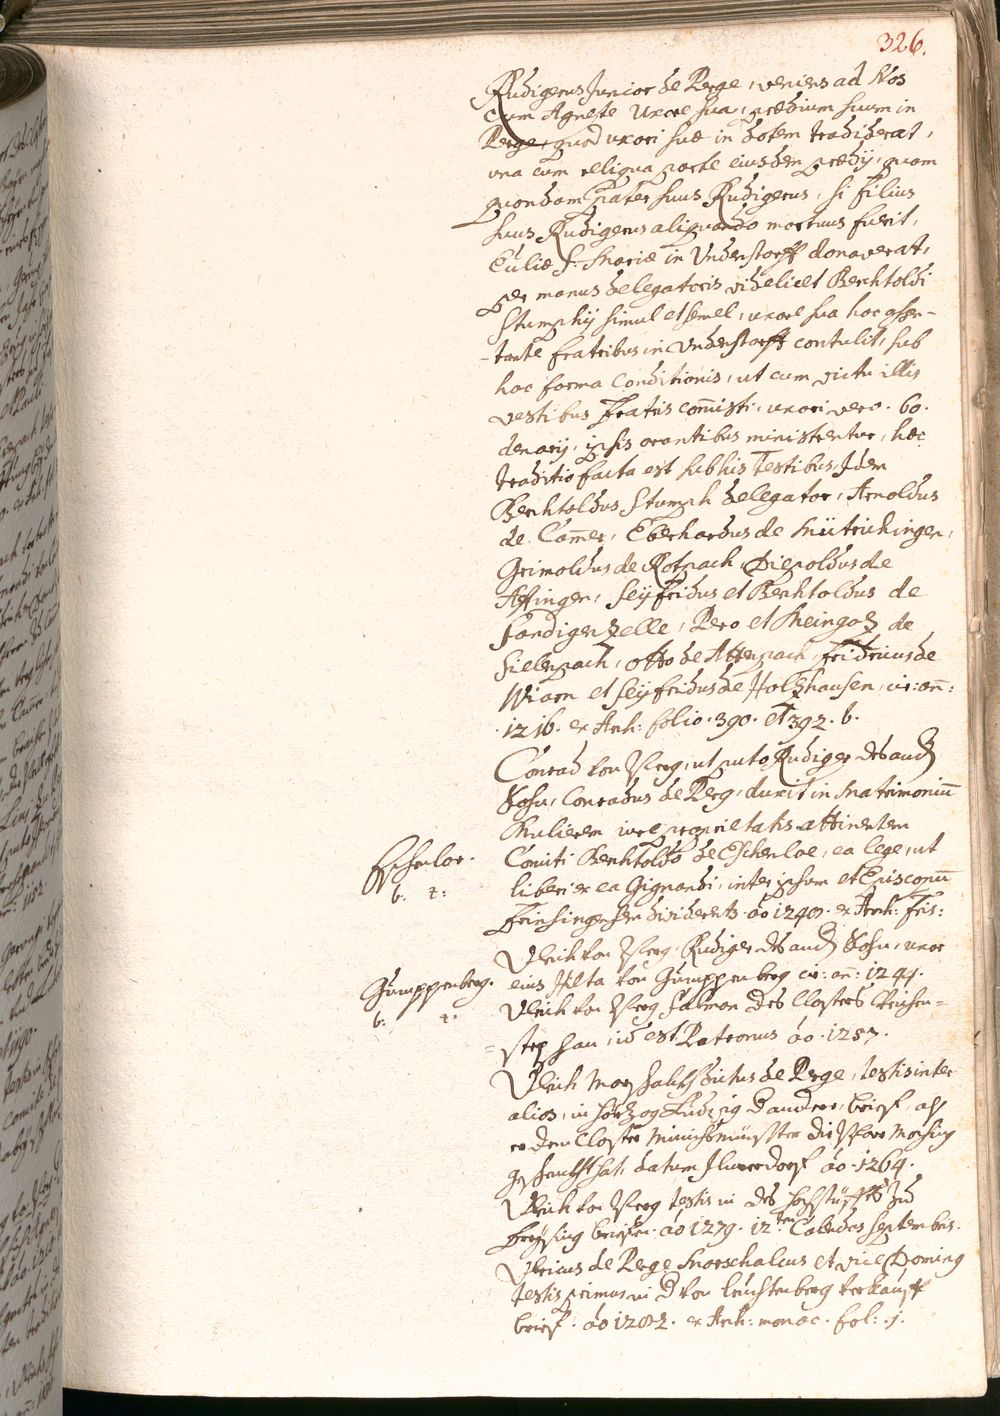 326.
Rudigerus Junior de Perge, veniens ad Nos
cum Agnete uxore sua, prædium suum in
Perge, quod uxori suæ in dotem tradiderat,
una cum reliqua parte eiusdem prædij, quam
quondam pater suus Rudigerus, si filius
suus Rudigerus aliquando mortuus fuerit,
Eccliæ S: Mariæ in Understorff donaverat,
per manus delegatoris videlicet Berchtoldi
Stumphij simul et semel, uxore sua hoc assen-
-tante fratribus in Understorff contulit, sub
hac forma conditionis, ut cum victu illis
vestibus fratris com̅isti, uxori vero. 60.
denarij, ipsis orantibus ministrentur, hæc
traditio facta est sub his Testibus, Idem
Berchtoldus Stumph delegator, Arnoldus
de Cam̅er, Eberhardus de Mütrichingen,
Grimoldus de Rotpach, Diepoldus de
Affingen, Seyfridus et Berchtoldus de
Sandizenzelle, Pero et Meingotz de
Sielenpach, Otto de Attenpach, Fridricus de
Wiarn et Seyfridus de Holtzhausen, cir: an̅:
.1216. ex Arch: folio. 390. et 392. b.
Conrad von Perg, ut puto Rudiger des and
Sohn, Conradus de Perg, duxit in Matrimoniu̅
Mulierem iure proprietatis attinentem
Eschenloe.
Comiti Berchtoldo de Eschenloe, ea lege, ut
b. r:
liberi ex ea Gignendi, inter ipsum et Episcopu̅
Freisingensem dividerentr. ao 1240. ex Arch: Fris:
Ulrich von Perg, Rudiger des and Sohn, uxor
Gumppenberg.
eius Hilta von Gumppenberg cir: an̅: 1244.
b. r.
Ulrich von Perg Salman des Closters Weichen-
=stephan, id est Patronus ao. 1257.
Ulrich Marschalkh dictus de Perge, testis inter
alios, in Hertzog Ludwig D andern, brief, als
er dem Closter Minichsmünster die Pfarr
geschenckht hat, datum Ao. 1264.
Ulrich von Perg testis in des Hochstüffts zu
Freysing briefen. ao 1279. 12ten Calendas Septembris.
Ulricus de Perge Marschalcus et vice Doming
testis primus in D von Leuchtenberg verkauff
brief. ao 1282. ex Arch: monac. fol: .j.